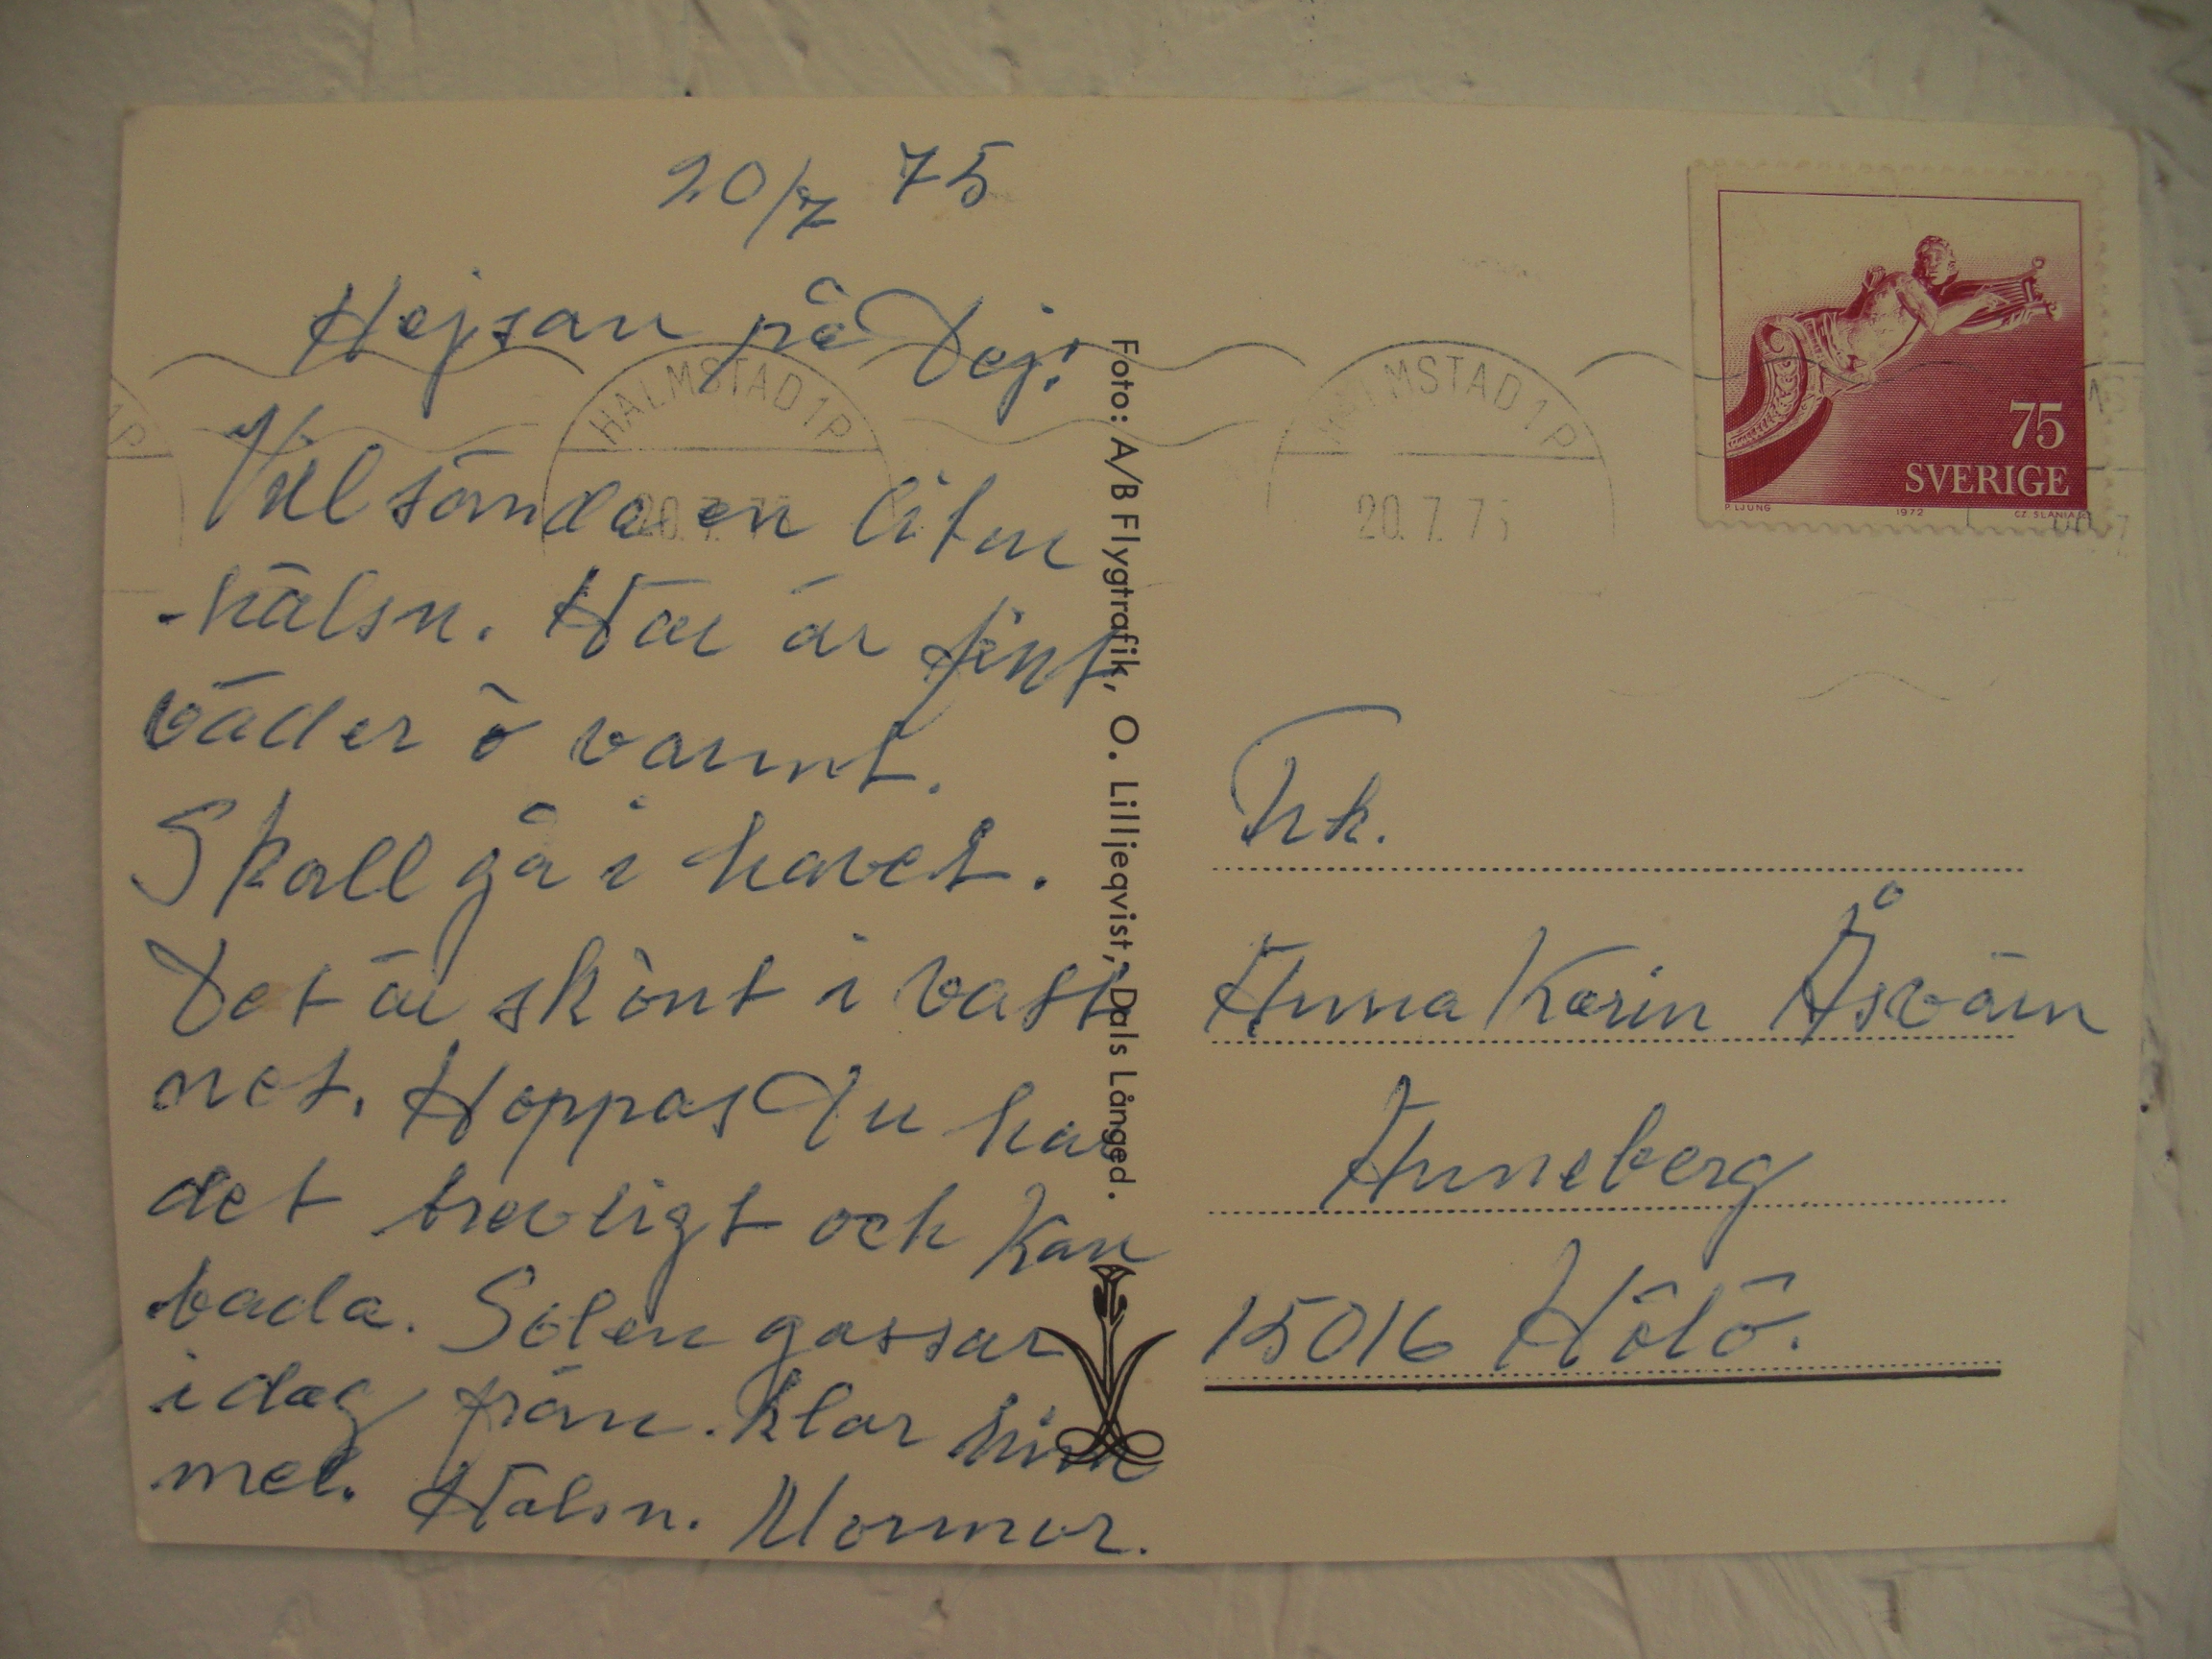 20/7 75
Hejsan på Dej!
Vill sända en liten
hälsn. Här är fint
väder ö varmt.
Skall gå i havet.
Det är skönt i vatt
net. Hoppas Du har
det trevligt och kan
bada. Solen gassar
idag från klar him
mel. Hälsn. Mormor.
HALMSTAD 1 P
20.7.75
HALMSTAD 1 P
20.7.75
Foto: A/B Flygtrafik, O. Lilljeqvist, Dals Långed.
75
SVERIGE
P. LJUNG 1972 CZ SLANIA SC
Frk.
Anna Karin Åsvärn
Anneberg
15016 Hölö.